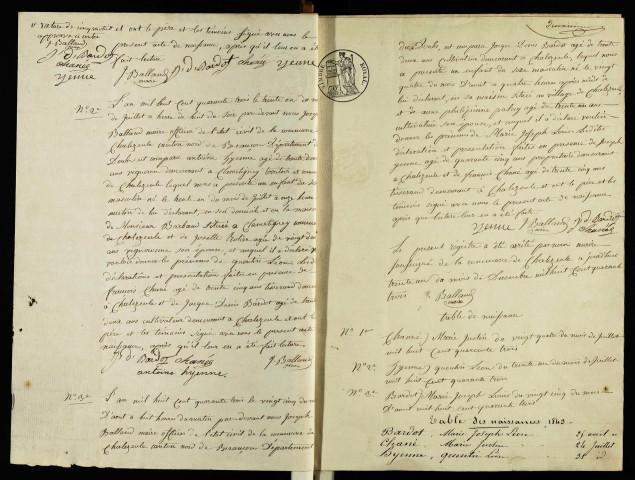 et ont le père et les témoins signé avec nous le
présent acte de naissance, après qu'il leur en a été
fait lecture
J Balland J D Bardot Chanée Yenne
maire
N° 2e
L'an mil huit cent quarante trois le trente un du mois
de juillet à heure de huit du soir par devant nous Joseph
Balland maire officier de l'état civil de la commune de
Chalezeule canton nord de Besançon Département du
Doubs est comparu antoine hyenne agé de trente deux
ans vigneron demeurant à Clemetigney territoire et commune
de Chalezeule lequel nous a présenté un enfant du sexe
masculin né le trente un du mois de juillet à onze heures
du lui déclarant, en son domicile en la maison
de Monsieur Barbaud située à Clemetigney commune
de Chalezeule et de Josette agé de vingt
ans vigneronne son épouse, et auquel il a déclaré
vouloir donner les prénoms de quentin Léon les dites
déclarations et présentation faites en présence de
françois Chané agé de trente cinq ans tisserand demeurant
à Chalezeule et de Jacque Denis Bardot agé de trente
deux ans cultivateur demeurant à Chalezeule et ont le
père et les témoins signé avec nous le présent acte de
naissance, après qu'il leur en a été fait lecture
J D Bardot Chanée J Balland
antoine hyenne maire
N° 3e
L'an mil huit cent quarante trois le vingt cinq du mois
D'avril à huit heures du matin par devant nous Joseph
Balland maire officier de l'état civil de la commune de
Chalezeule canton nord de Besançon Département
du Doubs, est comparu Jacque Denis Bardot agé de trente
deux ans cultivateur demeurant à Chalezeule, lequel nous
a présenté un enfant du sexe masculin né le vingt
quatre du mois D'avril à quatre heures après midi de
lui déclarant, en sa maison située au village de Chalezeule
et de agé de trente un ans
cultivatrice son épouse, et auquel il a déclaré vouloir
donner les prénoms de Marie Joseph Louis les dites
déclaration et présentation faites en présence de Joseph
yenne agé de quarante cinq ans propriétaire demeurant
à Chalezeule et de françois Chané agé de trente cinq ans
tisserand demeurant à Chalezeule et ont le père et les
témoins signé avec nous le présent acte de naissance
après que lecture leur en a été faite
Yenne J Balland J D Bardot
maire Chanée
Le présent registre a été arrêté par nous maire
soussigné de la commune de Chalezeule à
trente un du mois de Decembre mil huit cent quarante
trois J Balland
maire
table de naissance
N° 1er Chané) Marie Justin du vingt quatre du mois de juillet
mil huit cent quarente trois
N° 2e hyenne) quentin Leon du trente un du mois de juillet
mil huit cent quarante trois
N° 3e Bardot) Marie Joseph Louis du vingt cinq du mois
D'avril mil huit cent quarante trois
Table des naissances 1843
Bardot, Marie Joseph Léon 25 avril
Chané, Marie Justin 24 juillet
Hyenne, quentin Léon 31 d°